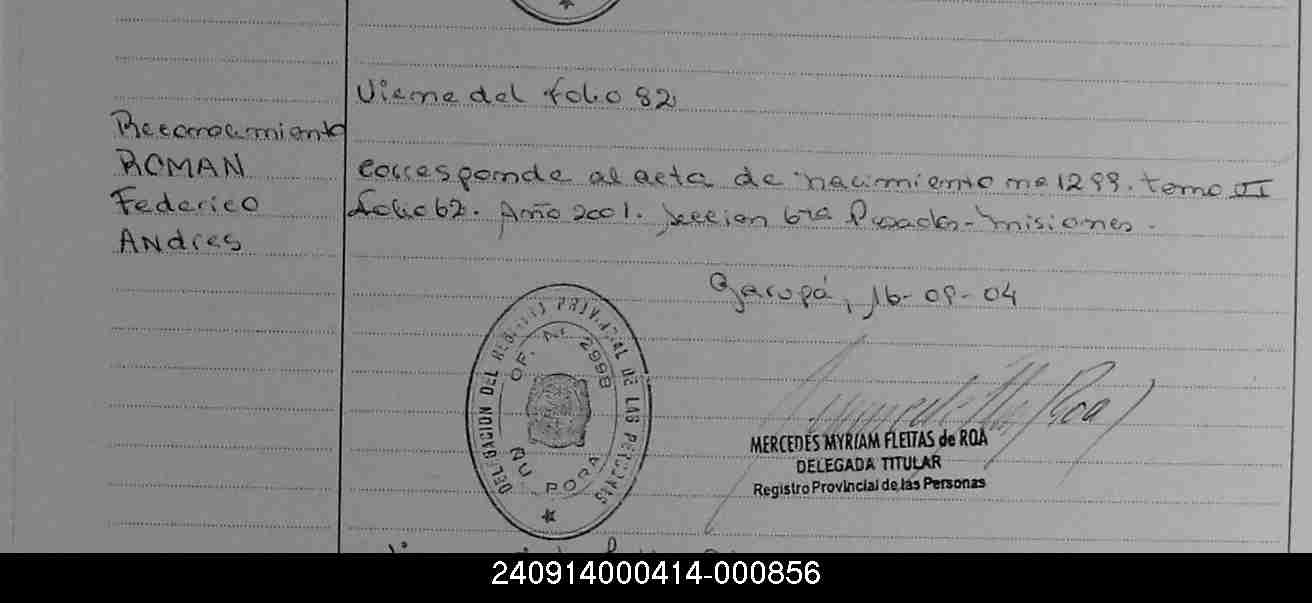 Viene del folio 82
Reconocimiento
ROMAN
Federico
Andres
corresponde al acta de nacimiento no 1299. tomo II
folio 62. Año 2001. Seccion 6ta Posadas-Misiones.
Garupá, 16-09-04
DELEGACION DEL REGISTRO PROVINCIAL DE LAS PERSONAS
OF. Nº 2998
ÑU PORA
MERCEDES MYRIAM FLEITAS de ROA
DELEGADA TITULAR
Registro Provincial de las Personas
240914000414-000856